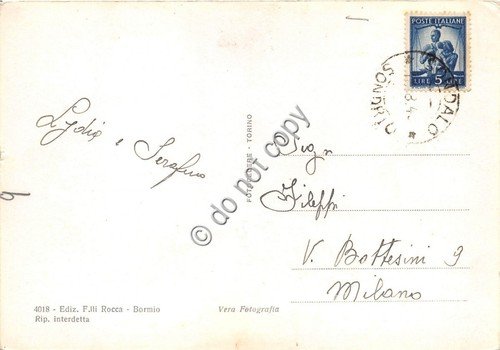 POSTE ITALIANE
LIRE 5
SONDALO
SONDRIO
Lydia e Serafino
POLIGENERE - TORINO
do not copy
Sign
Fileppi
V. Bottesini 9
Milano
4018 - Ediz. F.lli Rocca - Bormio
Rip. interdetta
Vera Fotografia